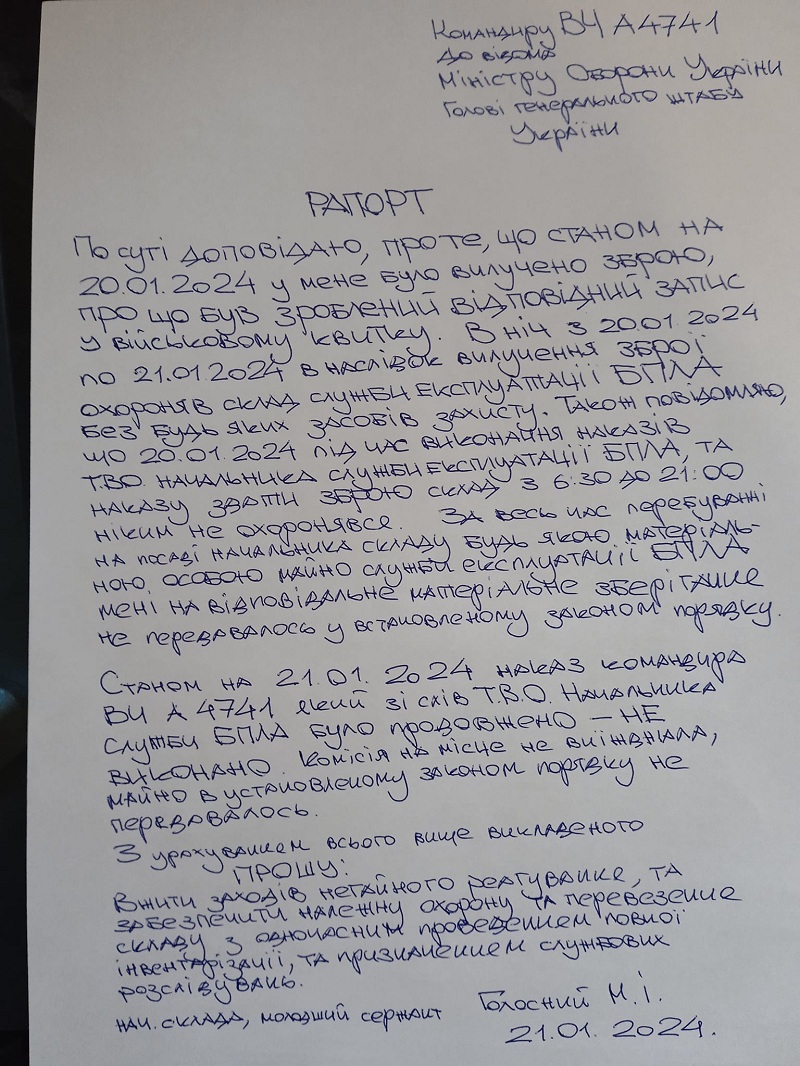 Командиру ВЧ А4741
До відома
Міністру Оборони України
Голові генерального штабу
України
РАПОРТ
По суті доповідаю, про те, що станом на
20.01.2024 у мене було вилучено зброю,
про що був зроблений відповідний запис
у військовому квитку. В ніч з 20.01.2024
по 21.01.2024 в наслідок вилучення зброї
охороняв склад служби експлуатації БПЛА
без будь яких засобів захисту. Також повідомляю,
що 20.01.2024 під час виконання наказів
Т.В.О. начальника служби експлуатації БПЛА, та
наказу здати зброю склад з 6:30 до 21:00
ніким не охоронявся. За весь час перебуванні
на посаді начальника складу будь якою матеріаль-
ною особою майно служби експлуатації БПЛА
мені на відповідальне матеріальне зберігання
не передавалось у встановленому законом порядку.
Станом на 21.01.2024 наказ командира
ВЧ А4741 який зі слів Т.В.О. Начальника
служби БПЛА було продовжено – НЕ
виконано. Комісія на місце не виїжджала,
майно в установленому законом порядку не
передавалось.
З урахуванням всього вище викладеного
ПРОШУ:
Вжити заходів негайного реагування, та
забезпечити належну охорону та перевезення
складу з одночасним проведенням повної
інвентарізації, та призначенням службових
розслідувань.
нач. склада, молодший сержант Голосний М.І.
21.01.2024.